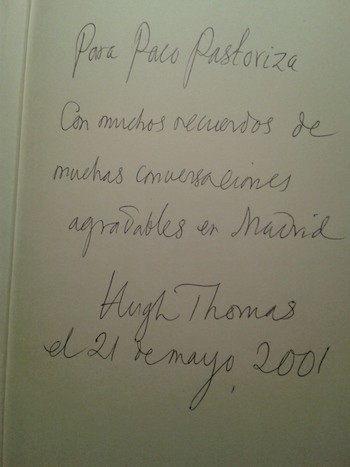 Para Paco Pastoriza
Con muchos recuerdos de
muchas conversaciones
agradables en Madrid
Hugh Thomas
el 21 de mayo, 2001